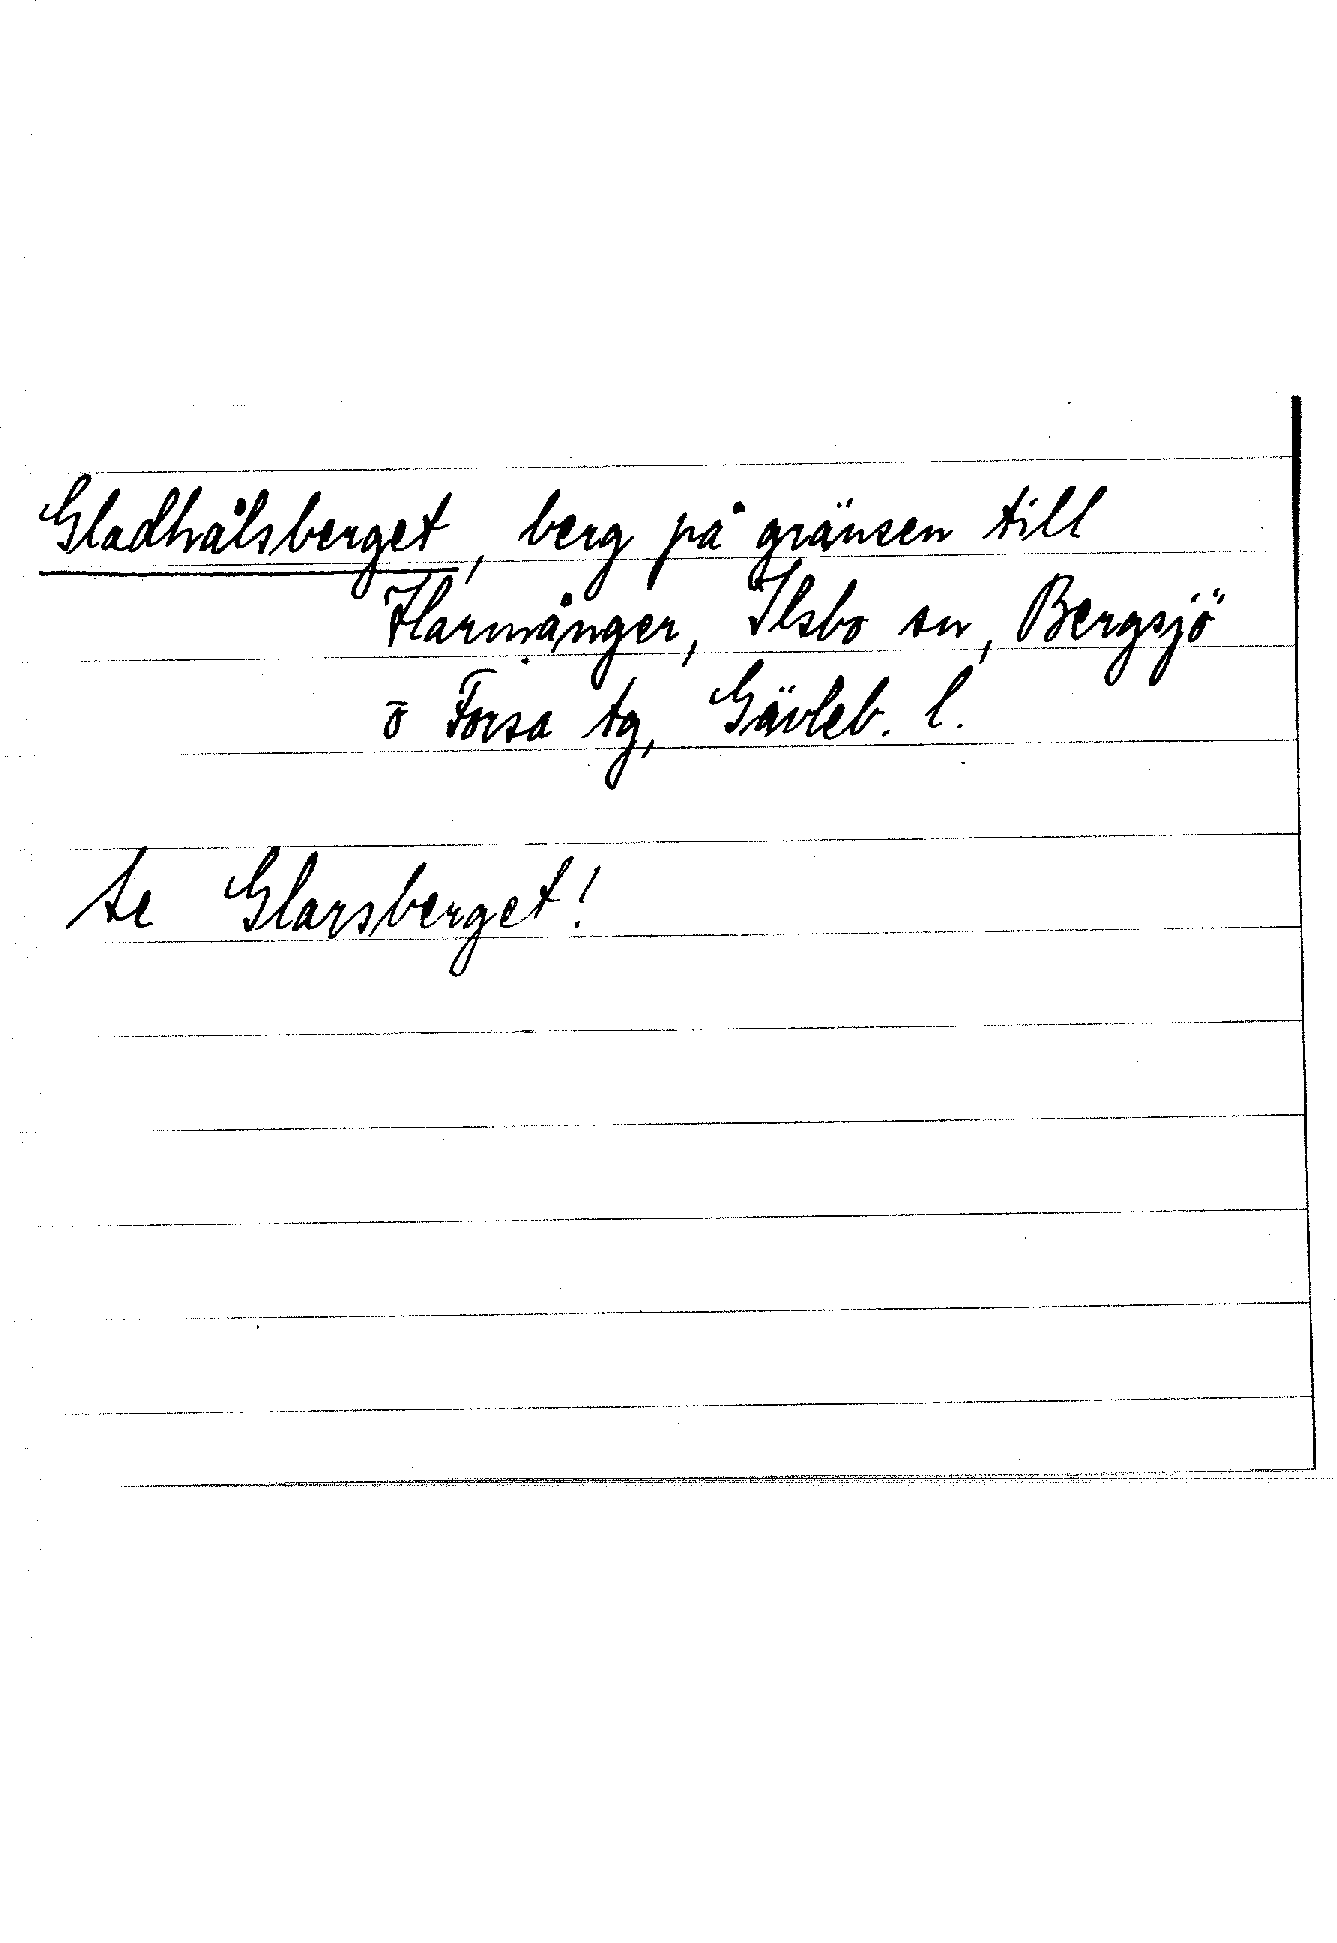 Gladhålsberget, berg på gränsen till
Harmånger, Ilsbo sn, Bergsjö
o Forsa tg, Gävleb. l.
se Glarsberget!